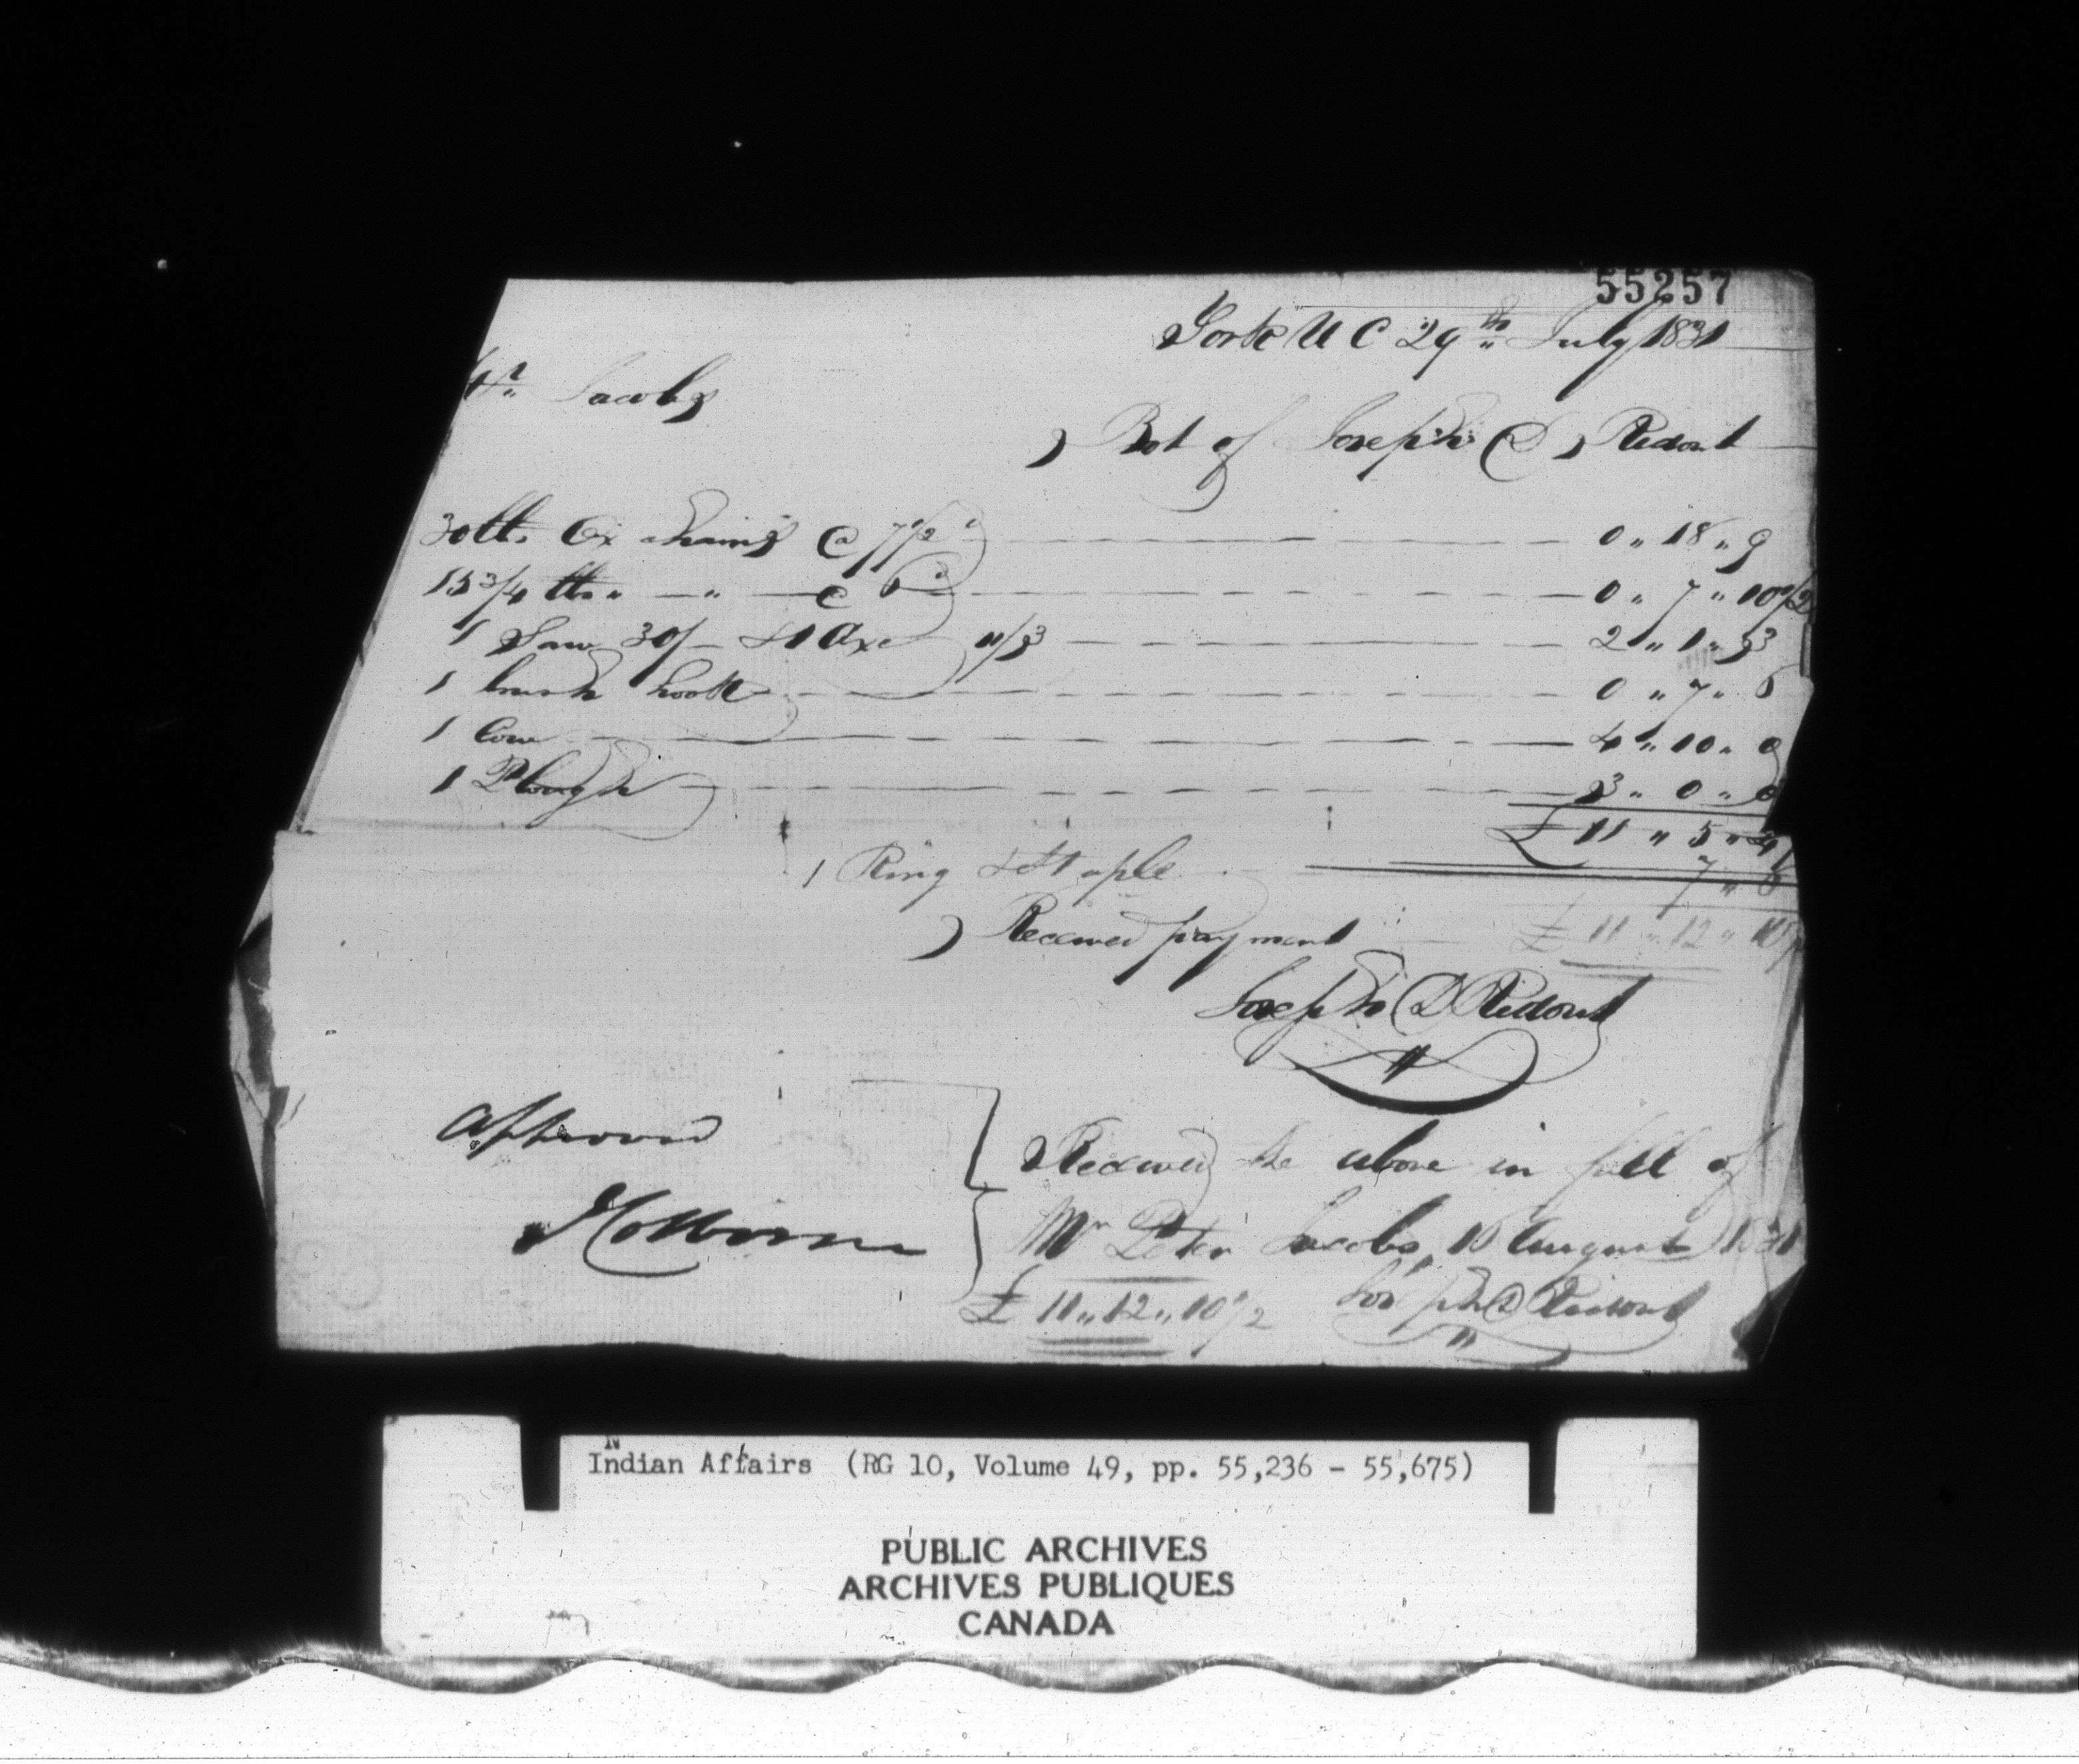 55257
York U C 29th July 1831
Mr Jacobs
Bot of Joseph D Ridout
30 lbs Ox chains @ 7 1/2d — 0 " 18 " 9
15 3/4 lbs " — " — @ 6d — 0 " 7 " 10 1/2
1 Saw 30/ – & 1 Axe 11/3 — 2 " 1 " 3
1 brush hook — 0 " 7 " 6
1 Cow — 4 " 10 " 0
1 Plough — 3 " 0 " 0
£ 11 " 5 " 4 1/2
1 Ring & Staple 7 " 6
Received payment £ 11 " 12 " 10 1/2
Joseph D Ridout
approved
J Colborne
Received the above in full of
Mr Peter Jacobs, 16 August 1831
£ 11 " 12 " 10 1/2 Joseph D Ridout
Indian Affairs (RG 10, Volume 49, pp. 55,236 - 55,675)
PUBLIC ARCHIVES
ARCHIVES PUBLIQUES
CANADA